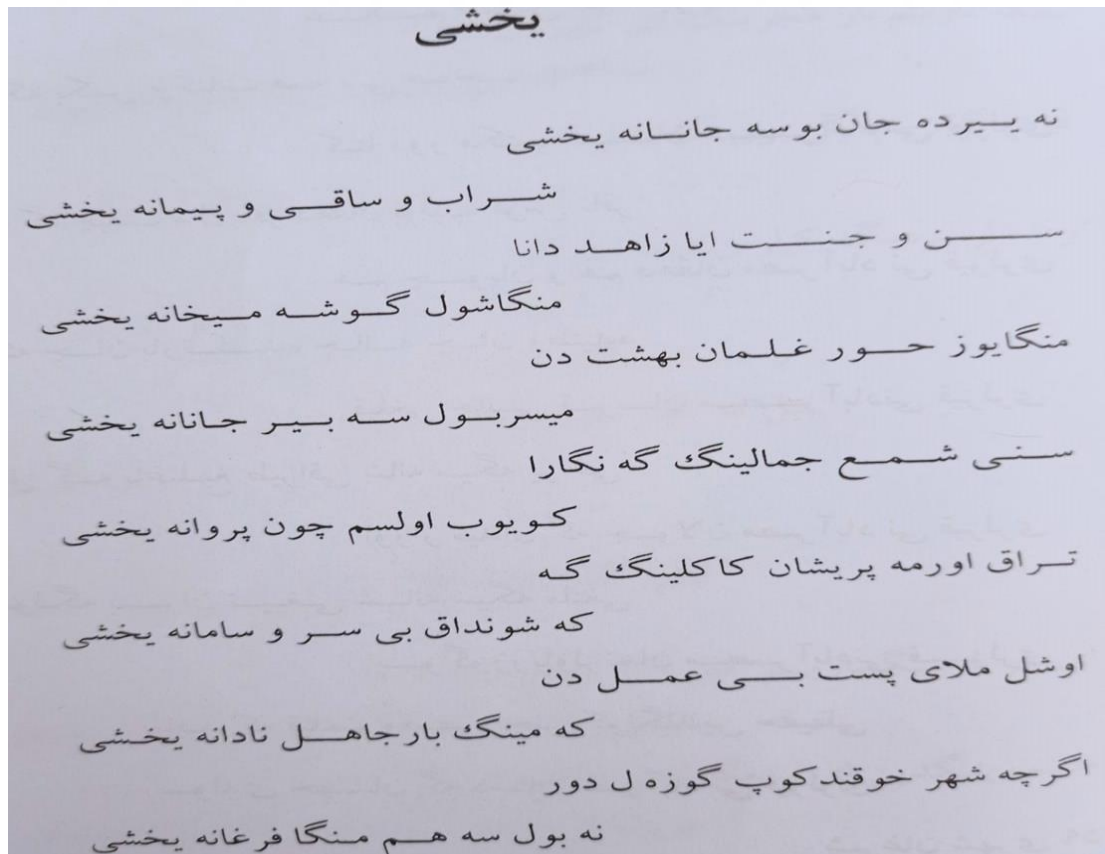 یخشی
نه ییرده جان بوسه جانانه یخشی
شراب و ساقی و پیمانه یخشی
سن و جنت ایا زاهد دانا
منگاشول گوشه میخانه یخشی
منگایوز حور غلمان بهشت دن
میسربول سه بیر جانانه یخشی
سنی شمع جمالینگ گه نگارا
کویوب اولسم چون پروانه یخشی
تراق اورمه پریشان کاکلینگ گه
که شونداق بی سر و سامانه یخشی
اوشل ملای پست بی عمل دن
که مینگ بارجاهل نادانه یخشی
اگرچه شهر خوقندکوپ گوزه ل دور
نه بول سه هم منگا فرغانه یخشی